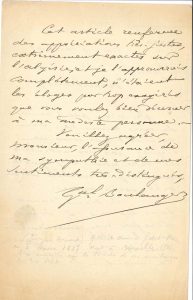 Cet article renferme
des appréciations très justes
extrêmement exactes sur
l'algérie et je l'approuverais
complètement, n'étaient
les éloges par trop exagérés
que vous voulez bien donner
à ma modeste personne.
Veuillez agréer,
Monsieur, l'assurance de
ma sympathie et de mes
sentiments très distingués,
Gve Boulanger